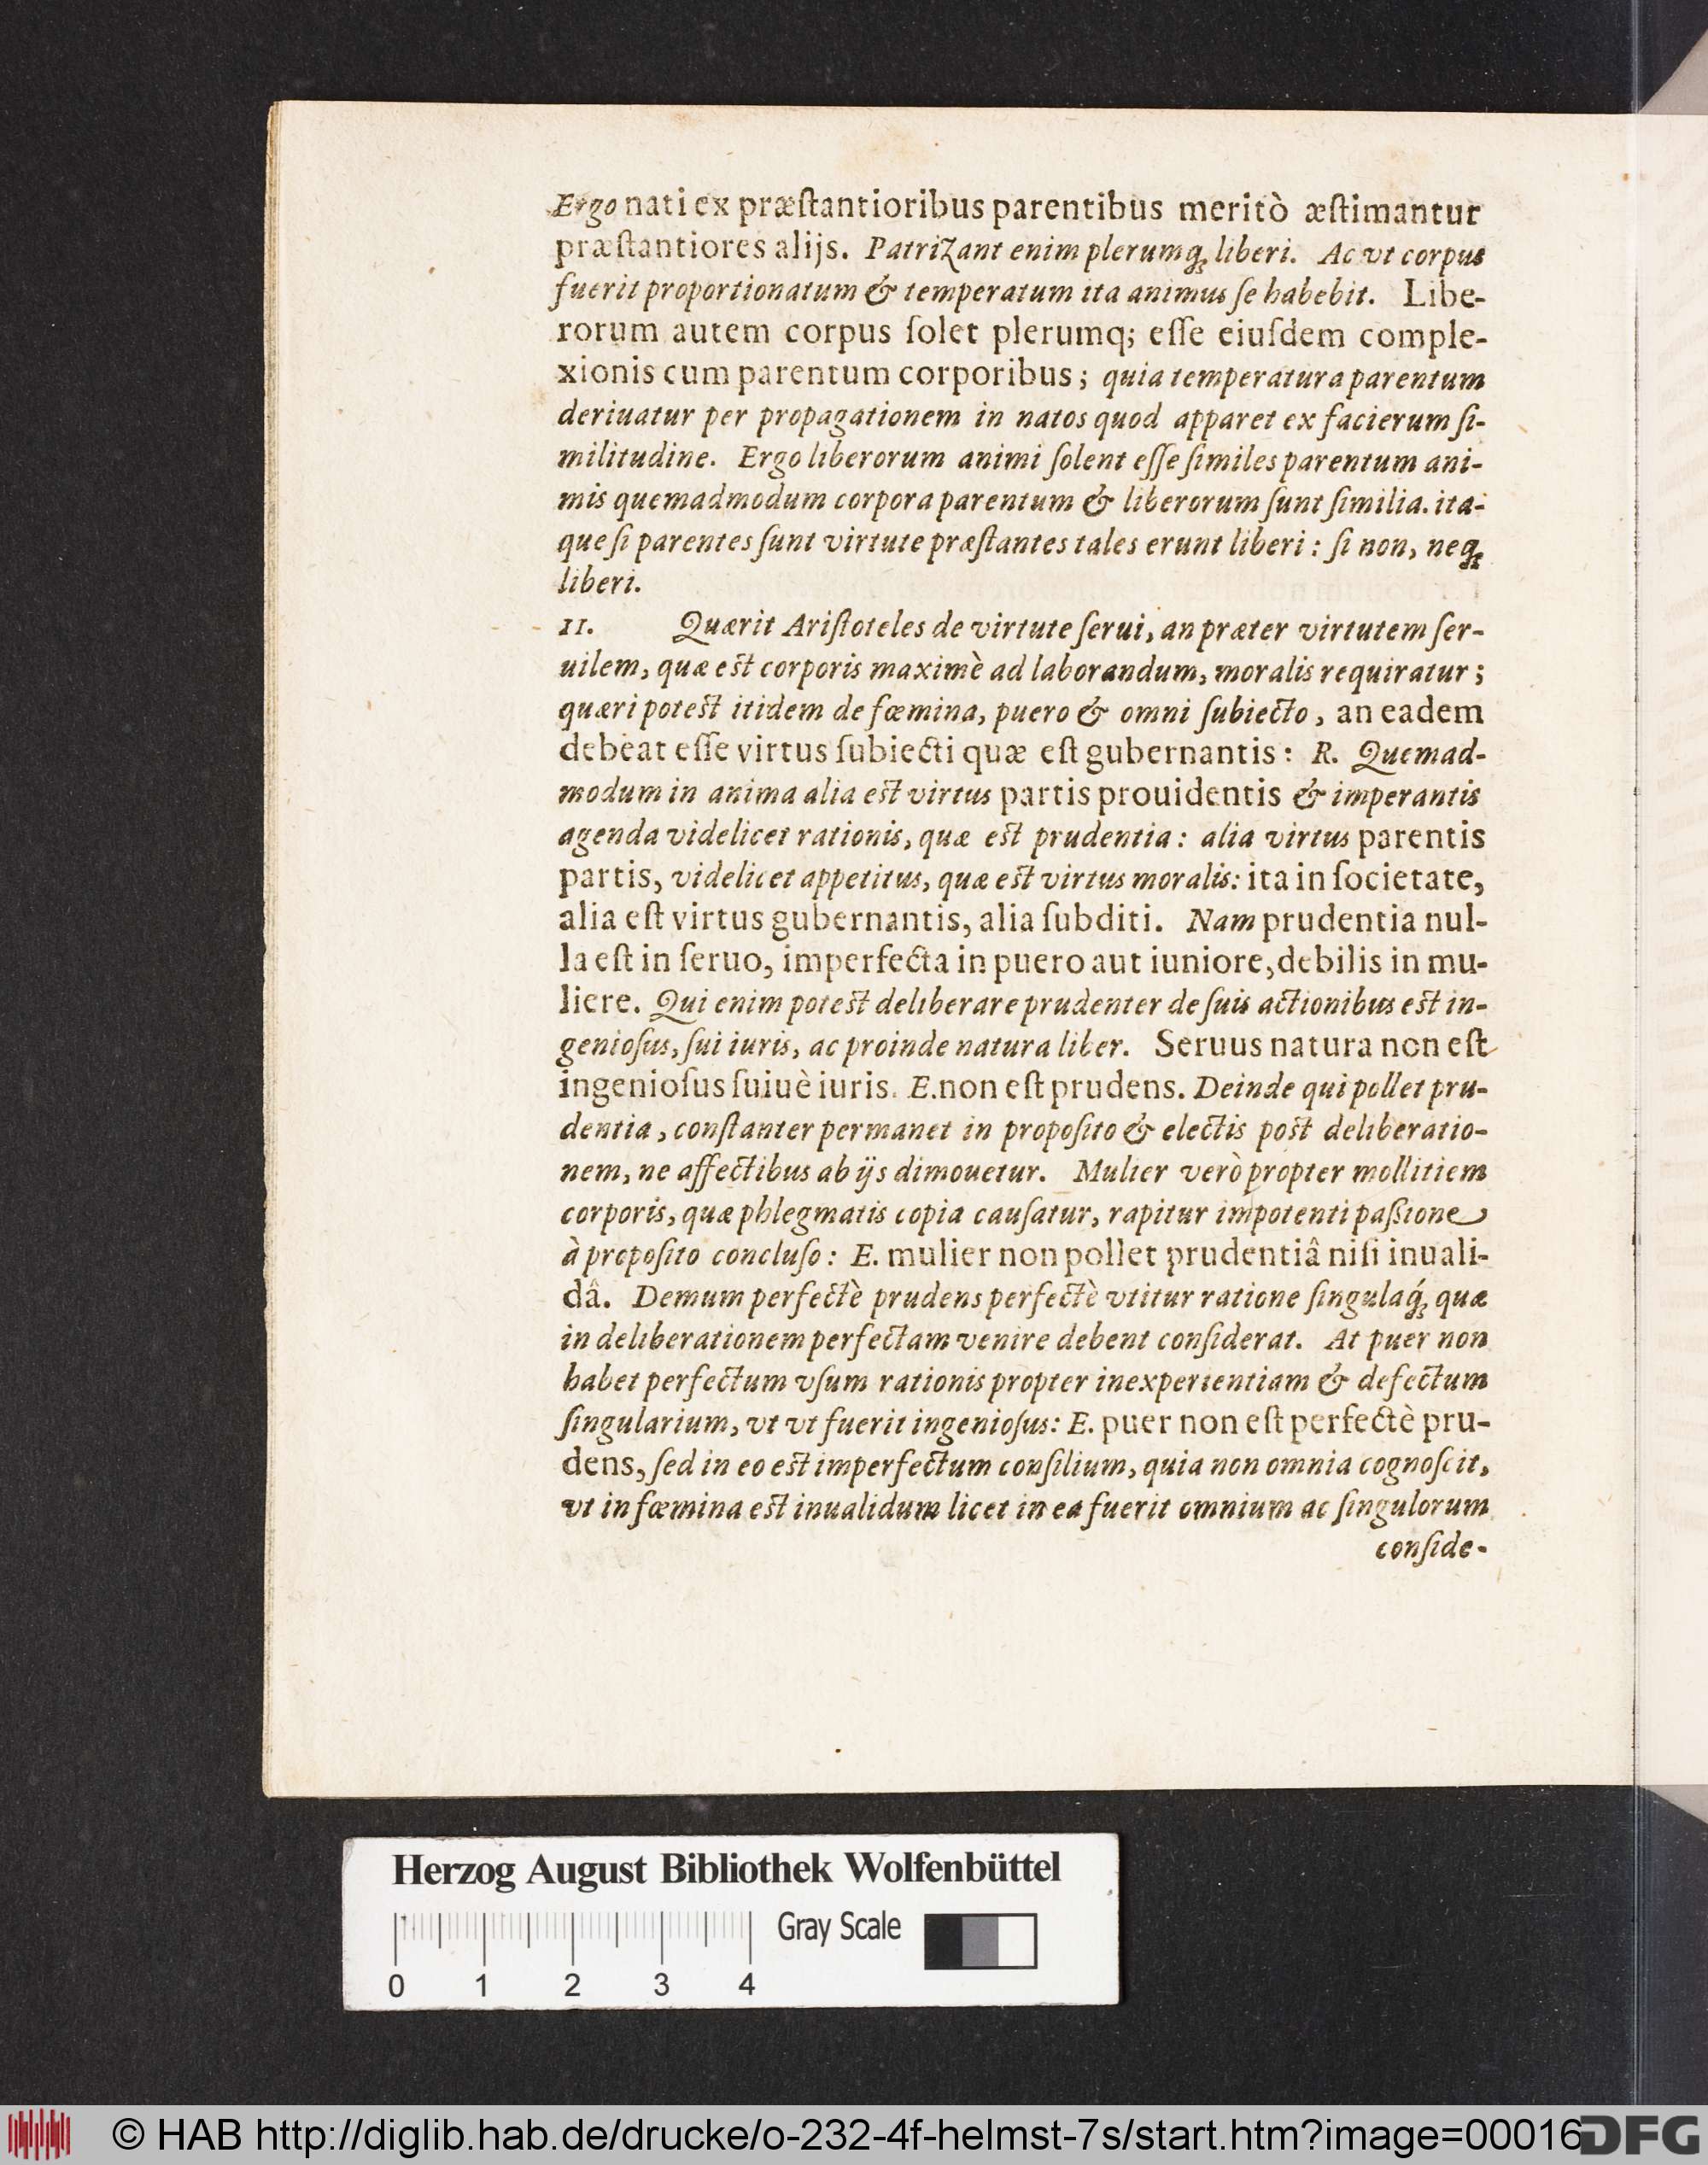 Ergo nati ex præſtantioribus parentibus meritò æſtimantur
præſtantiores alijs. Patrizant enim plerumq; liberi. Ac vt corpus
fuerit proportionatum & temperatum ita animus ſe habebit. Libe-
rorum autem corpus ſolet plerumq; eſſe eiuſdem comple-
xionis cum parentum corporibus; quia temperatura parentum
deriuatur per propagationem in natos quod apparet ex facierum ſi-
militudine. Ergo liberorum animi ſolent eſſe ſimiles parentum ani-
mis quemadmodum corpora parentum & liberorum ſunt ſimilia. ita-
que ſi parentes ſunt virtute præſtantes tales erunt liberi: ſi non, neq;
liberi.
11. Quærit Ariſtoteles de virtute ſerui, an præter virtutem ſer-
uilem, quæ eſt corporis maximè ad laborandum, moralis requiratur;
quæri poteſt itidem de fœmina, puero & omni ſubiecto, an eadem
debeat eſſe virtus ſubiecti quæ eſt gubernantis: R. Quemad-
modum in anima alia eſt virtus partis prouidentis & imperantis
agenda videlicet rationis, quæ eſt prudentia: alia virtus parentis
partis, videlicet appetitus, quæ eſt virtus moralis: ita in ſocietate,
alia eſt virtus gubernantis, alia ſubditi. Nam prudentia nul-
la eſt in ſeruo, imperfecta in puero aut iuniore, debilis in mu-
liere. Qui enim poteſt deliberare prudenter de ſuis actionibus eſt in-
genioſus, ſui iuris, ac proinde natura liber. Seruus natura non eſt
ingenioſus ſuiuè iuris. E. non eſt prudens. Deinde qui pollet pru-
dentia, conſtanter permanet in propoſito & electis poſt deliberatio-
nem, ne affectibus ab ijs dimouetur. Mulier verò propter mollitiem
corporis, quæ phlegmatis copia cauſatur, rapitur impotenti paſsione
à propoſito concluſo: E. mulier non pollet prudentiâ niſi inuali-
dâ. Demum perfectè prudens perfectè vtitur ratione ſingulaq́; quæ
in deliberationem perfectam venire debent conſiderat. At puer non
habet perfectum vſum rationis propter inexperientiam & defectum
ſingularium, vt vt fuerit ingenioſus: E. puer non eſt perfectè pru-
dens, ſed in eo eſt imperfectum conſilium, quia non omnia cognoſcit,
vt in fœmina eſt inualidum licet in ea fuerit omnium ac ſingulorum
conſide-
Herzog August Bibliothek Wolfenbüttel
Gray Scale
0 1 2 3 4
© HAB http://diglib.hab.de/drucke/o-232-4f-helmst-7s/start.htm?image=00016
DFG